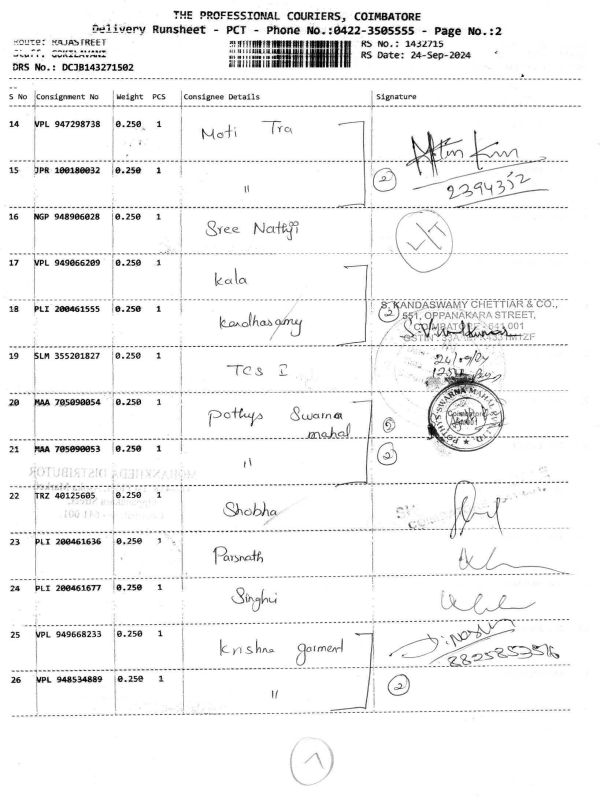 THE PROFESSIONAL COURIERS, COIMBATORE
Delivery Runsheet - PCT - Phone No.:0422-3505555 - Page No.:2
Route: RAJASTREET
RS No.: 1432715
Staff: GOKILAVANI
RS Date: 24-Sep-2024
DRS No.: DCJB143271502
S No Consignment No Weight PCS Consignee Details Signature
14 VPL 947298738 0.250 1 Moti Tra
15 JPR 100180032 0.250 1 "
2
2394352
16 NGP 948906028 0.250 1 Sree Nathji
L/T
17 VPL 949066209 0.250 1 kala
18 PLI 200461555 0.250 1 kandhasamy
2
S. KANDASWAMY CHETTIAR & CO.,
551, OPPANAKARA STREET,
COIMBATORE - 641 001
19 SLM 355201827 0.250 1 TCS I
24/09/24
20 MAA 705090054 0.250 1 Pothys Swarna
mahal
POTHYS SWARNA MAHAL PVT LTD
Coimbatore
21 MAA 705090053 0.250 1 "
2
22 TRZ 40125605 0.250 1 Shobha
23 PLI 200461636 0.250 1 Parsnath
24 PLI 200461677 0.250 1 Singhvi
25 VPL 949668233 0.250 1 krishna garment
8825853576
26 VPL 948534889 0.250 1 "
2